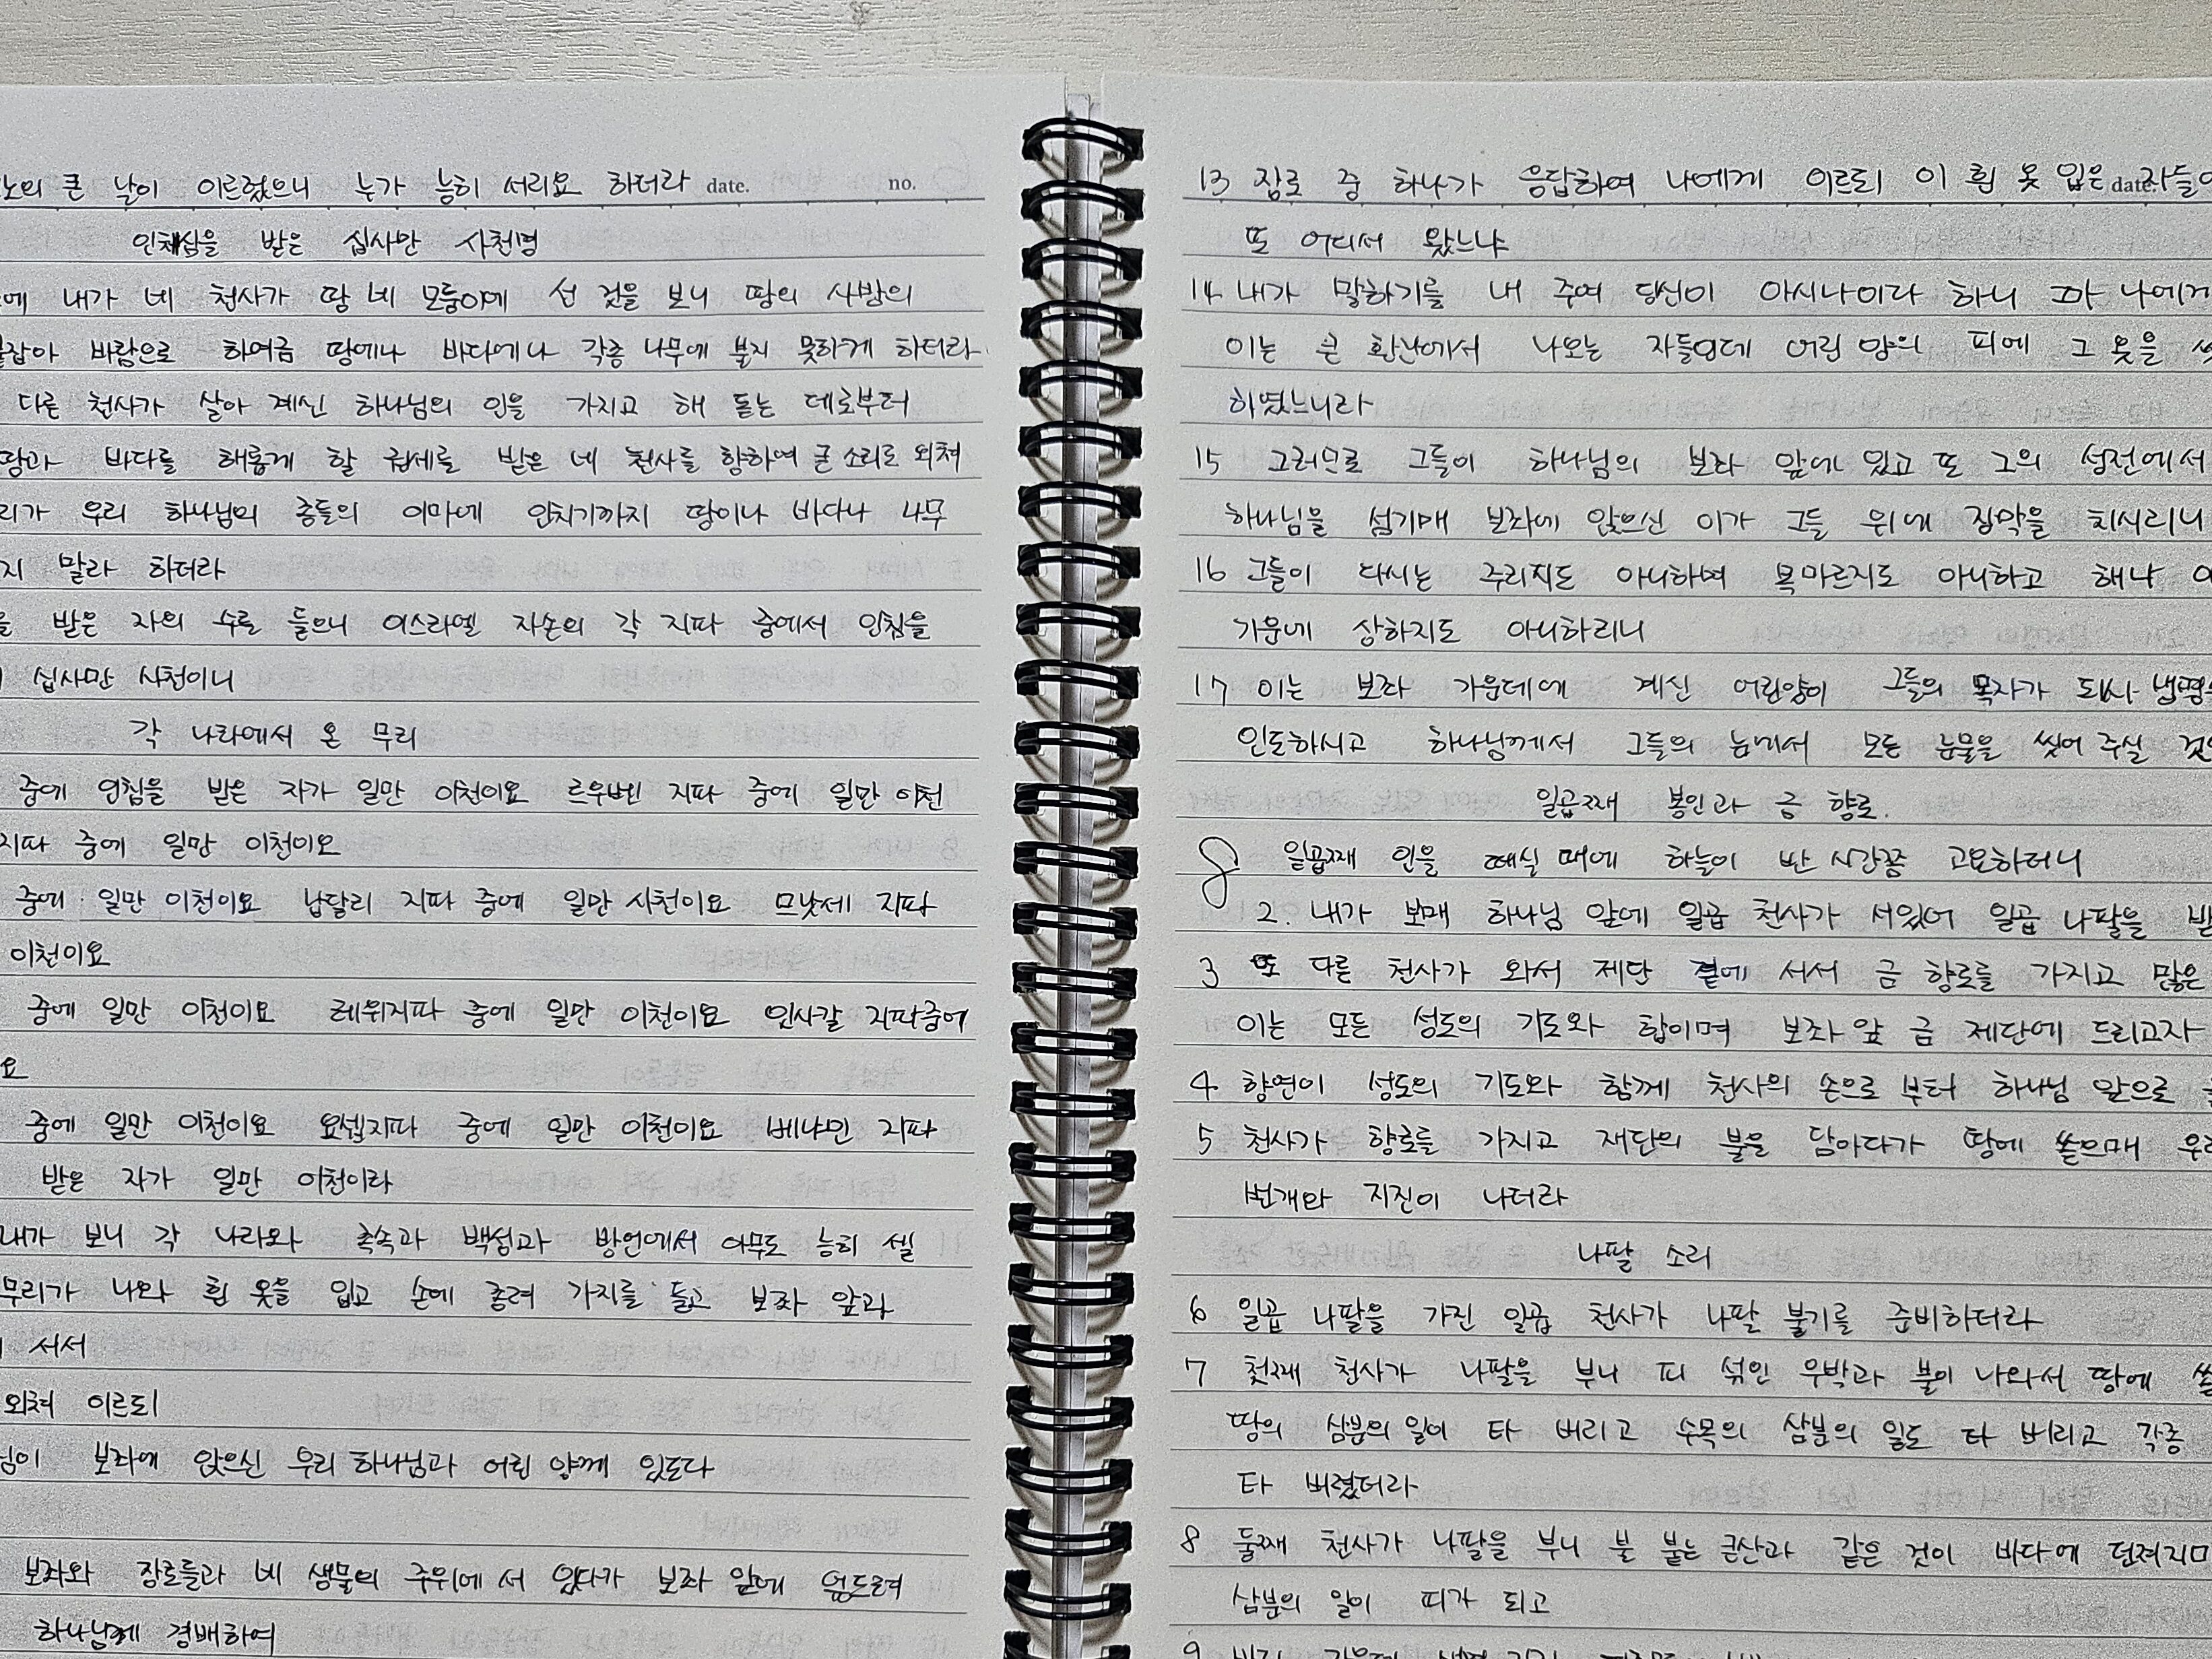 노의 큰 날이 이르렀으니 누가 능히 서리요 하더라 date. no.
인침을 받은 십사만 사천명
에 내가 네 천사가 땅 네 모퉁이에 선 것을 보니 땅의 사방의
붙잡아 바람으로 하여금 땅에나 바다에나 각종 나무에 불지 못하게 하더라
다른 천사가 살아 계신 하나님의 인을 가지고 해 돋는 데로부터
땅과 바다를 해롭게 할 권세를 받은 네 천사를 향하여 큰 소리로 외쳐
리가 우리 하나님의 종들의 이마에 인치기까지 땅이나 바다나 나무
지 말라 하더라
을 받은 자의 수를 들으니 이스라엘 자손의 각 지파 중에서 인침을
십사만 사천이니
각 나라에서 온 무리
중에 인침을 받은 자가 일만 이천이요 르우벤 지파 중에 일만 이천
지파 중에 일만 이천이요
중에 일만 이천이요 납달리 지파 중에 일만 사천이요 므낫세 지파
이천이요
중에 일만 이천이요 레위지파 중에 일만 이천이요 잇사갈 지파중에
요
중에 일만 이천이요 요셉지파 중에 일만 이천이요 베냐민 지파
받은 자가 일만 이천이라
내가 보니 각 나라와 족속과 백성과 방언에서 아무도 능히 셀
무리가 나와 흰 옷을 입고 손에 종려 가지를 들고 보좌 앞과
서서
외쳐 이르되
님이 보좌에 앉으신 우리 하나님과 어린 양께 있도다
보좌와 장로들과 네 생물의 주위에 서 있다가 보좌 앞에 엎드려
하나님께 경배하여
13 장로 중 하나가 응답하여 나에게 이르되 이 흰 옷 입은 date. 자들이
또 어디서 왔느냐
14 내가 말하기를 내 주여 당신이 아시나이다 하니 그가 나에게
이는 큰 환난에서 나오는 자들인데 어린 양의 피에 그 옷을 씻
하였느니라
15 그러므로 그들이 하나님의 보좌 앞에 있고 또 그의 성전에서
하나님을 섬기매 보좌에 앉으신 이가 그들 위에 장막을 치시리니
16 그들이 다시는 주리지도 아니하며 목마르지도 아니하고 해나 아
가운에 상하지도 아니하리니
17 이는 보좌 가운데에 계신 어린양이 그들의 목자가 되사 생명수
인도하시고 하나님께서 그들의 눈에서 모든 눈물을 씻어 주실 것
일곱째 봉인과 금 향로.
8 일곱째 인을 떼실 때에 하늘이 반 시간쯤 고요하더니
2. 내가 보매 하나님 앞에 일곱 천사가 서있어 일곱 나팔을 받
3 또 다른 천사가 와서 제단 곁에 서서 금 향로를 가지고 많은
이는 모든 성도의 기도와 합이며 보좌 앞 금 제단에 드리고자
4 향연이 성도의 기도와 함께 천사의 손으로 부터 하나님 앞으로
5 천사가 향로를 가지고 재단의 불을 담아다가 땅에 쏟으매 우레
번개와 지진이 나더라
나팔 소리
6 일곱 나팔을 가진 일곱 천사가 나팔 불기를 준비하더라
7 첫째 천사가 나팔을 부니 피 섞인 우박과 불이 나와서 땅에 쏟
땅의 삼분의 일이 타 버리고 수목의 삼분의 일도 타 버리고 각종
타 버렸더라
8 둘째 천사가 나팔을 부니 불 붙는 큰산과 같은 것이 바다에 던져지매
삼분의 일이 피가 되고
9